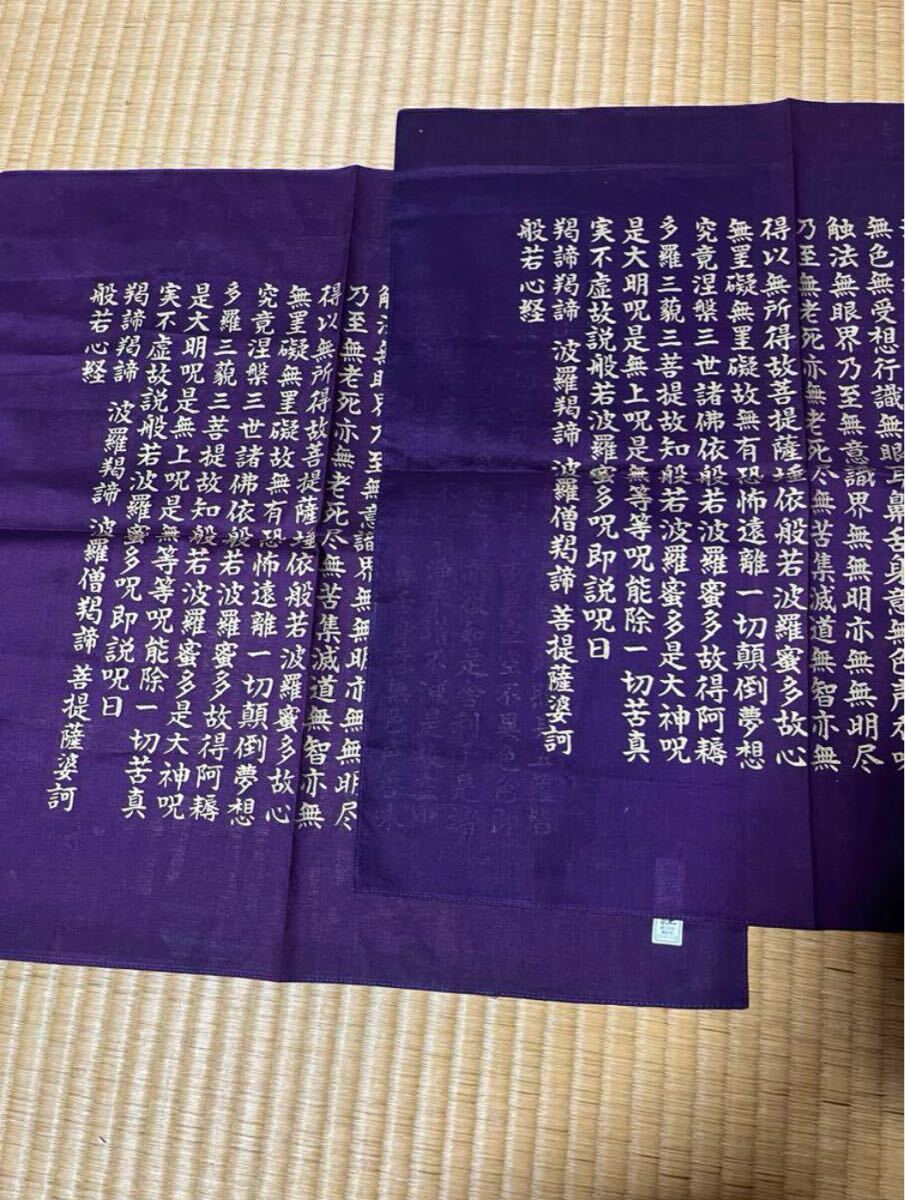 無色無受想行識無眼耳鼻舌身意無色声香味
触法無眼界乃至無意識界無無明亦無無明尽
乃至無老死亦無老死尽無苦集滅道無智亦無
得以無所得故菩提薩埵依般若波羅蜜多故心
無罣礙無罣礙故無有恐怖遠離一切顛倒夢想
究竟涅槃三世諸佛依般若波羅蜜多故得阿耨
多羅三藐三菩提故知般若波羅蜜多是大神呪
是大明呪是無上呪是無等等呪能除一切苦真
実不虚故説般若波羅蜜多呪即説呪曰
羯諦羯諦 波羅羯諦 波羅僧羯諦 菩提薩婆訶
般若心経
触法無眼界乃至無意識界無無明亦無無明尽
乃至無老死亦無老死尽無苦集滅道無智亦無
得以無所得故菩提薩埵依般若波羅蜜多故心
無罣礙無罣礙故無有恐怖遠離一切顛倒夢想
究竟涅槃三世諸佛依般若波羅蜜多故得阿耨
多羅三藐三菩提故知般若波羅蜜多是大神呪
是大明呪是無上呪是無等等呪能除一切苦真
実不虚故説般若波羅蜜多呪即説呪曰
羯諦羯諦 波羅羯諦 波羅僧羯諦 菩提薩婆訶
般若心経